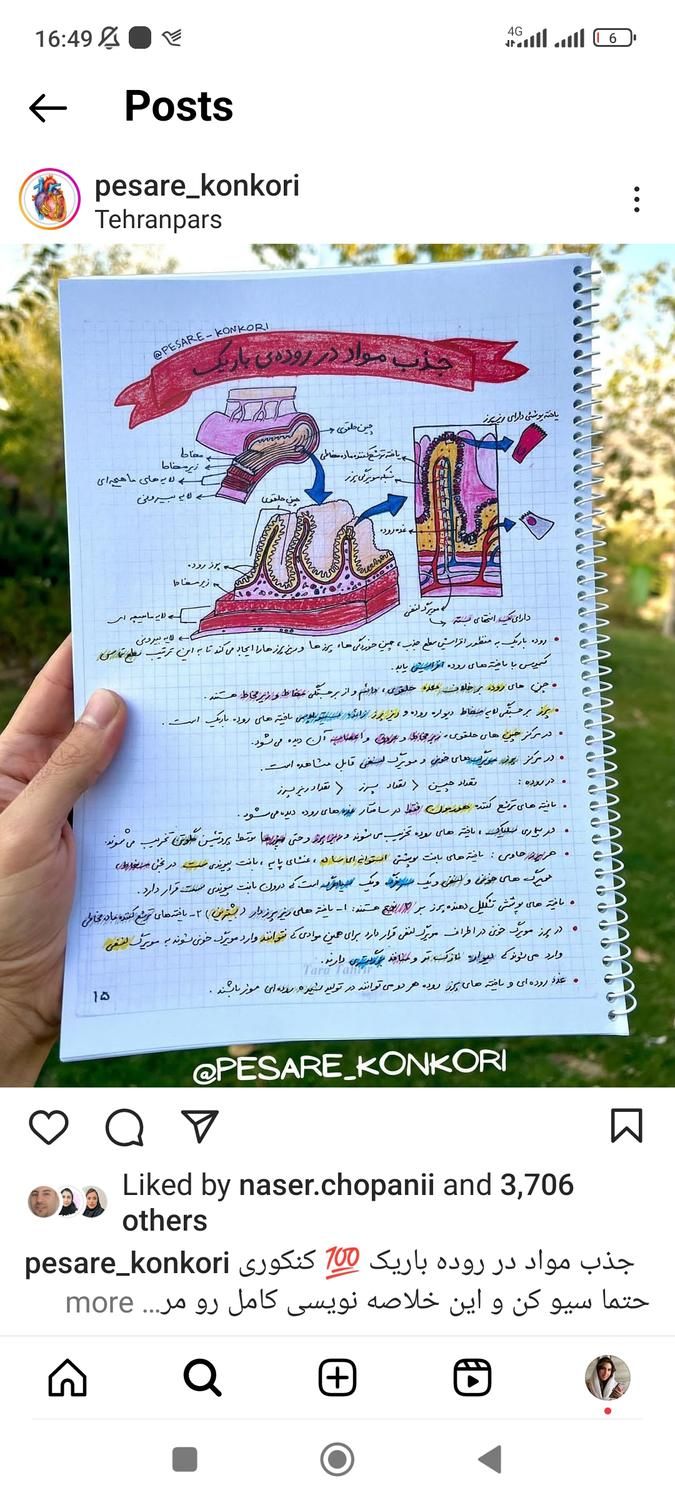 16:49
4G
6
Posts
pesare_konkori
Tehranpars
@PESARE_KONKORI
جذب مواد در روده‌ی باریک
یاخته پوششی دارای ریزپرز
چین حلقوی
یاخته ترشح‌کننده ماده مخاطی
مخاط
زیرمخاط
شبکه مویرگی پرز
لایه‌های ماهیچه‌ای
لایه بیرونی
چین حلقوی
غده روده
پرز روده
زیرمخاط
مویرگ لنفی
لایه ماهیچه ای
دارای یک انتهای بسته
لایه بیرونی
روده باریک به منظور افزایش سطح جذب، چین خوردگی ها، پرزها و ریزپرزها را ایجاد می‌کند تا به این ترتیب سطح تماس
کیموس با یاخته‌های روده افزایش یابد.
چین های روده بر خلاف معده حلقوی، دائم و از برجستگی مخاط و زیرمخاط هستند.
پرز برجستگی لایه مخاط دیواره روده و ریزپرز زوائد سیتوپلاسمی یاخته های روده باریک است.
در مرکز چین های حلقوی، زیرمخاط و عروق و اعصاب آن دیده می‌شود.
در مرکز پرز مویرگ‌های خونی و مویرگ لنفی قابل مشاهده است.
در روده: تعداد چین < تعداد پرز < تعداد ریزپرز
یاخته های ترشح کننده هورمون فقط در ساختار غده‌های روده دیده می‌شود.
در بیماری سلیاک، یاخته های روده تخریب می‌شوند و ریزپرز و حتی پرزها توسط پروتئین گلوتن تخریب می شوند.
هر پرز حاوی: یاخته های بافت پوششی استوانه‌ای ساده، غشای پایه، بافت پیوندی سست، در بخش
مویرگ های خونی و لنفی و یک سرخرگ و یک سیاهرگ است که درون بافت پیوندی سست قرار دارد.
یاخته های پوششی تشکیل دهنده پرز بر ۲ نوع هستند: ۱- یاخته های ریزپرزدار (بیشترین) ۲- یاخته‌های ترشح کننده ماده مخاطی
در پرز مویرگ خونی در اطراف مویرگ لنفی قرار دارد برای همین موادی که نتوانند وارد مویرگ خونی شوند به مویرگ لنفی
وارد می‌شوند که دیواره نازک تر و منافذ بزرگتری دارند.
Tara Tahrir
غدد روده‌ای و یاخته های پرز روده هر دو می توانند در تولید شیره روده‌ای موثر باشند.
۱۵
@PESARE_KONKORI
Liked by naser.chopanii and 3,706
others
pesare_konkori جذب مواد در روده باریک 💯 کنکوری
حتما سیو کن و این خلاصه نویسی کامل رو مر... more